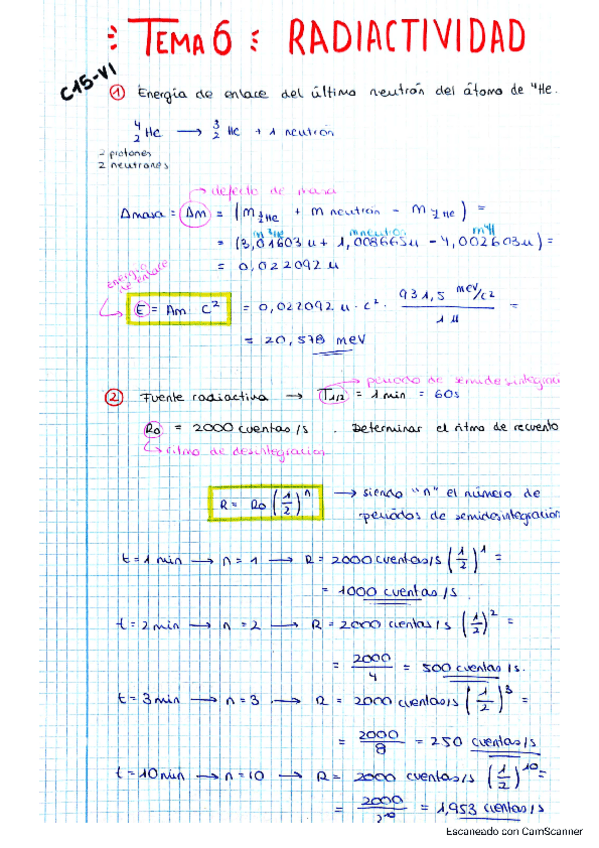 : TEMA 6 : RADIACTIVIDAD
C15-VI
① Energía de enlace del último neutrón del átomo de ⁴He.
⁴₂He → ³₂He + 1 neutrón
2 protones
2 neutrones
→ defecto de masa
Δmasa = Δm = (m ³₂He + m neutrón - m ⁴₂He) =
m ³He mneutrón m⁴H
= (3,01603 u + 1,008665 u - 4,002603 u) =
= 0,022092 u
energía de enlace
E = Δm c² = 0,022092 u · c² · 931,5 MeV/c² / 1 u =
= 20,578 meV
② Fuente radiactiva → T1/2 = 1 min = 60s → periodo de semidesintegración
R₀ = 2000 cuentas/s . Determinar el ritmo de recuento
→ ritmo de desintegración
R = R₀ (1/2)ⁿ → siendo "n" el número de
periodos de semidesintegración
t = 1 min → n = 1 → R = 2000 cuentas/s (1/2)¹ =
= 1000 cuentas/s.
t = 2 min → n = 2 → R = 2000 cuentas/s (1/2)² =
= 2000/4 = 500 cuentas/s.
t = 3 min → n = 3 → R = 2000 cuentas/s (1/2)³ =
= 2000/8 = 250 cuentas/s
t = 10 min → n = 10 → R = 2000 cuentas/s (1/2)¹⁰ =
= 2000/2¹⁰ = 1,953 cuentas/s
Escaneado con CamScanner